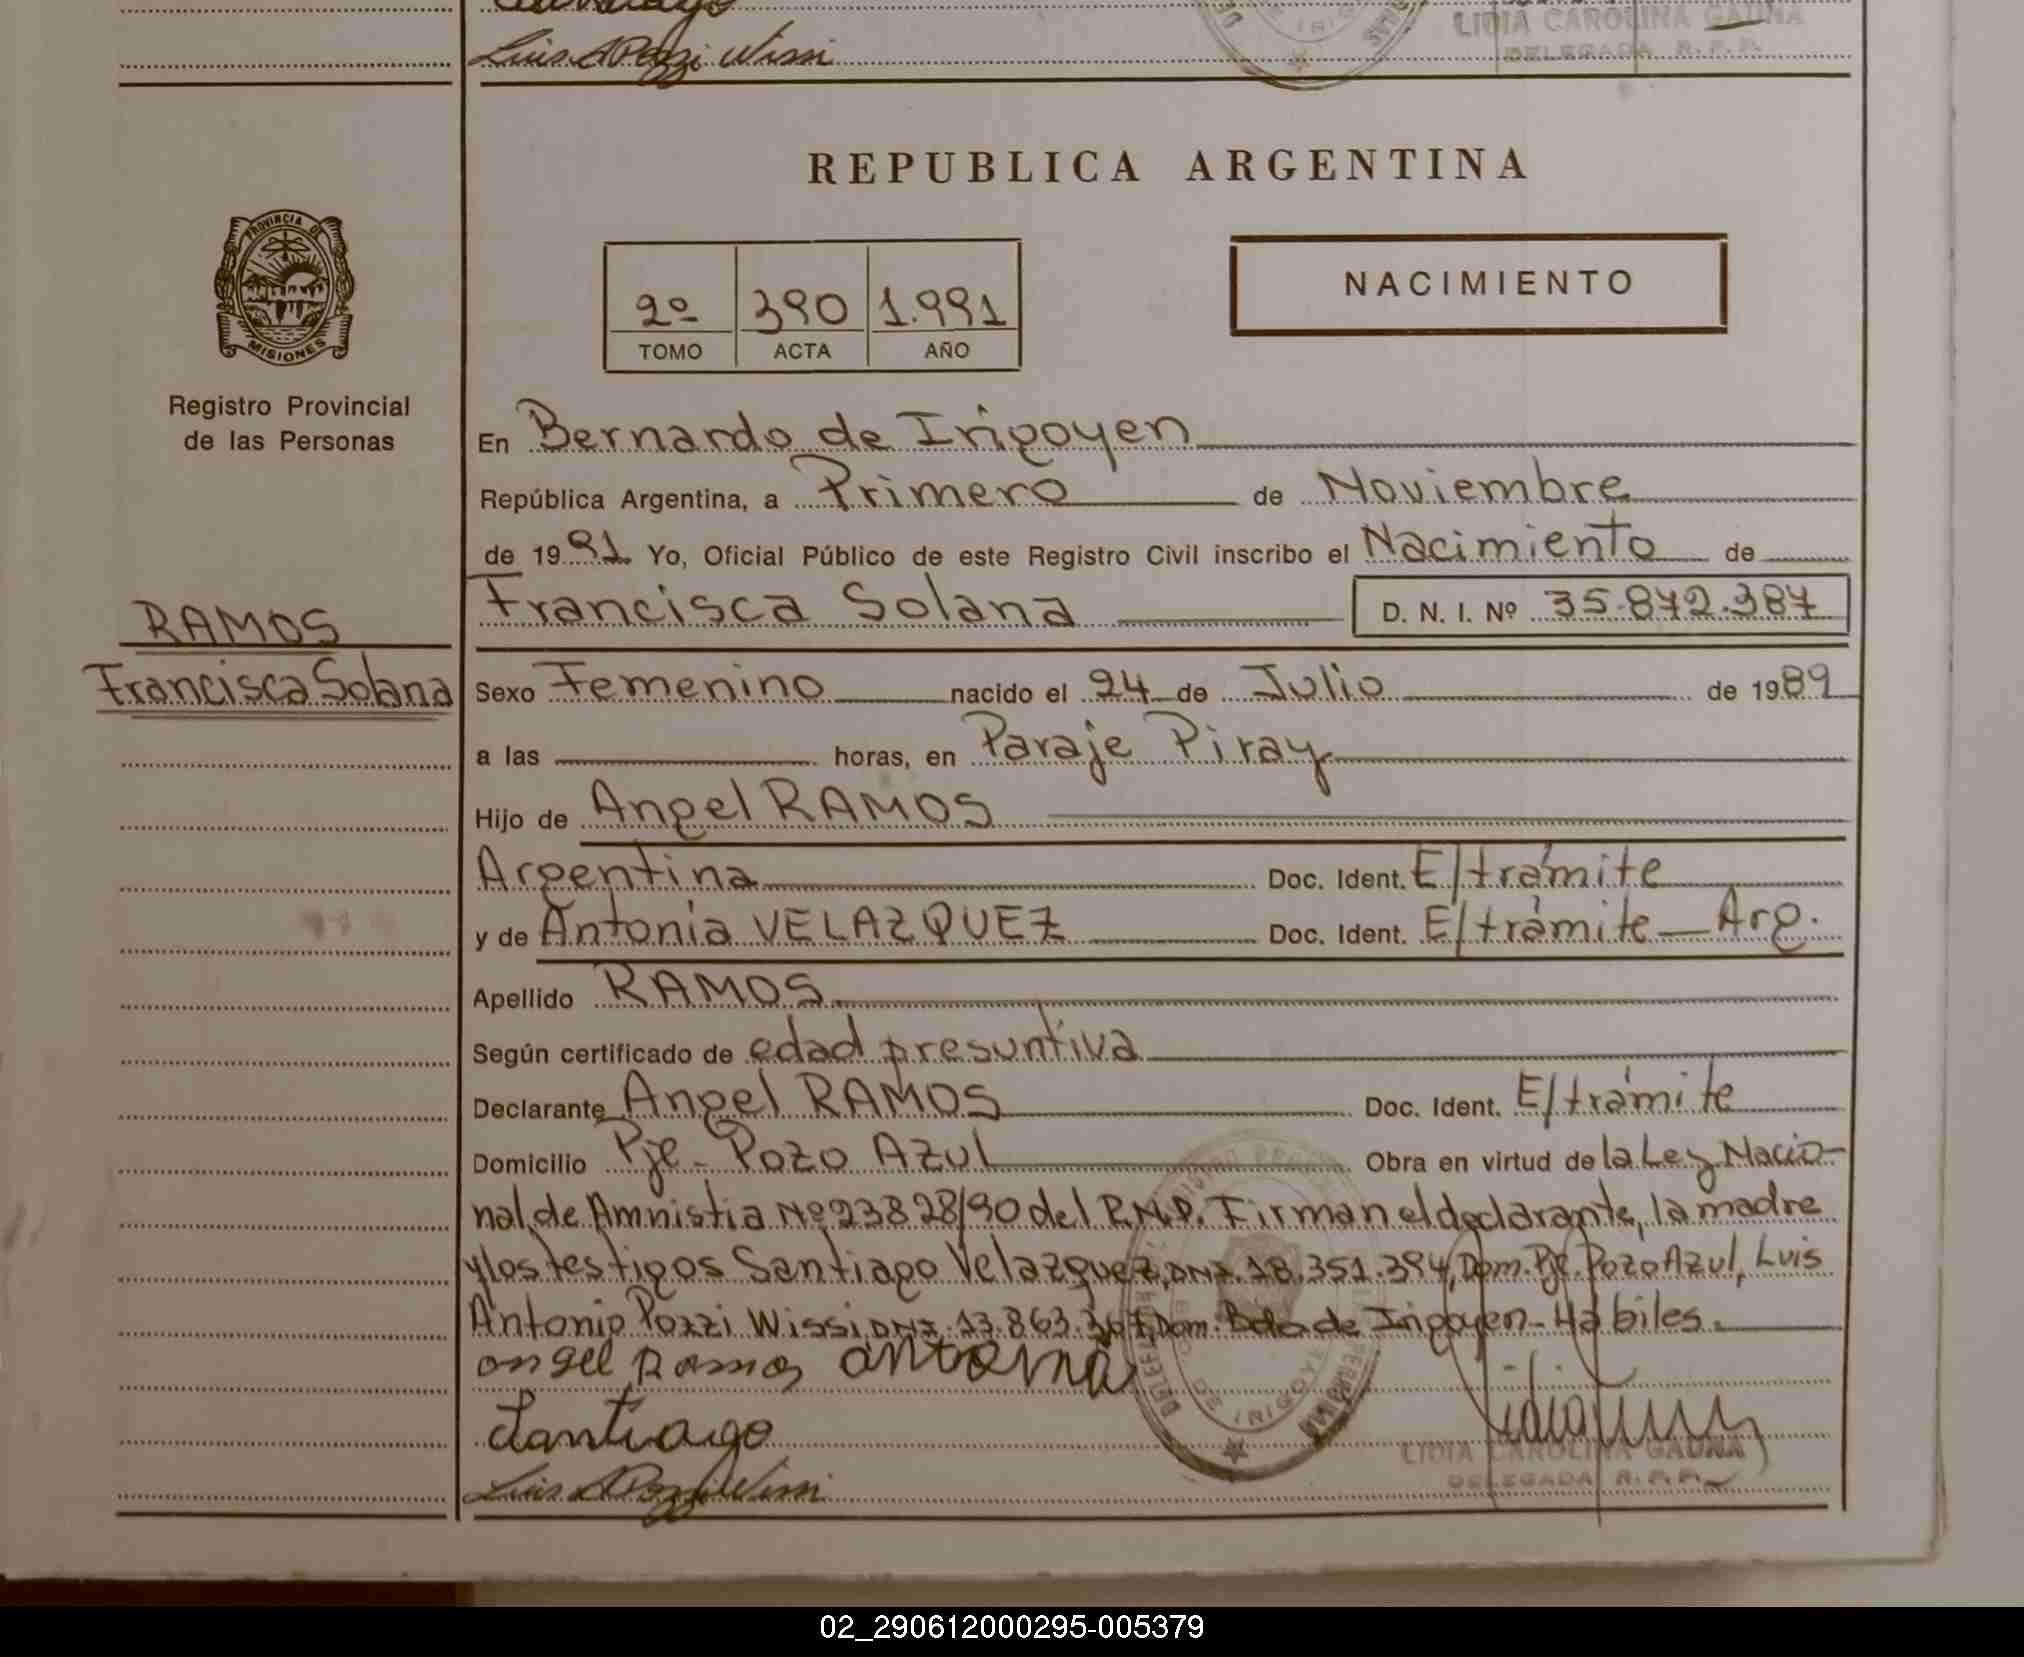 Luis A Pozzi Wissi
LIDIA CAROLINA GAUNA
DELEGADA R. P. P.
REPUBLICA ARGENTINA
PROVINCIA DE
MISIONES
Registro Provincial
de las Personas
2º 390 1.991
TOMO ACTA AÑO
NACIMIENTO
En Bernardo de Irigoyen
República Argentina, a Primero de Noviembre
de 1991 Yo, Oficial Público de este Registro Civil inscribo el Nacimiento de
Francisca Solana D. N. I. Nº 35.872.387
RAMOS
Francisca Solana
Sexo Femenino nacido el 24 de Julio de 1989
a las horas, en Paraje Piray
Hijo de Angel RAMOS
Argentina Doc. Ident. E/trámite
y de Antonia VELAZQUEZ Doc. Ident. E/trámite Arg.
Apellido RAMOS
Según certificado de edad presuntiva
Declarante Angel RAMOS Doc. Ident. E/trámite
Domicilio Pje. Pozo Azul Obra en virtud de la Ley Nacio-
nal de Amnistia Nº 23828/90 del R.N.P. Firman el declarante, la madre
y los testigos Santiago Velazquez, DNI. 18.351.394, Dom. Pje. Pozo Azul, Luis
Antonio Pozzi Wissi DNI. 13.863. Dom. Bdo de Irigoyen - Hábiles.
angel Ramos antonia
Santiago
Luis A Pozzi Wissi
DE IRIGOYEN
LIDIA CAROLINA GAUNA
DELEGADA R. P. P.
02_290612000295-005379